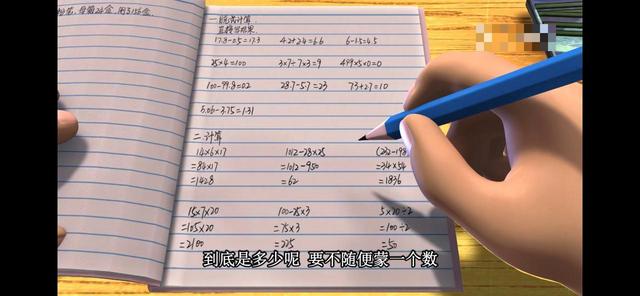 一.脱式计算.
直接写结果.
17.8-0.5=17.3 4.2+2.4=6.6 6-1.5=4.5
25×4=100 3×7-7×3=9 499×5×0=0
100-99.8=0.2 28.7-5.7=23 7.3+2.7=10
5.06-3.75=1.31
二.计算
14×6×17 1012-28×25
=84×17 =1012-950 =34×54
=1428 =62 =1836
15×7×20 100-25×3 5×20÷2
=105×20 =75×3 =100÷2
=2100 =225 =50
到底是多少呢 要不随便蒙一个数